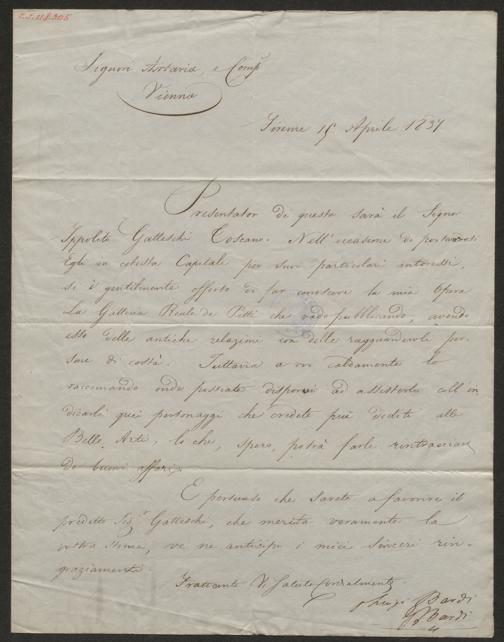 Signori Artaria, e Comp.
Vienna
Firenze 15 Aprile 1837
Presentator di questa sarà il Signor
Ippolito Gatteschi Toscano. Nell'occasione di portarsi
Egli in cotesta Capitale per suoi particolari interessi,
si è gentilmente offerto di far conoscere la mia Opera
La Galleria Reale de Pitti che vado pubblicando, avendo
esso delle antiche relazioni con delle ragguardevoli per-
sone di costà. Tuttavia a voi caldamente lo
raccomando onde possiate disporvi ad assisterlo coll'in
dicarli quei personaggi che credete più dediti alle
Belle Arti, lo che, spero, potrà farle rintracciare
de buoni affari.
E persuaso che sarete a favorire il
predetto Sig.r Gatteschi, che merita veramente la
vostra stima, ve ne anticipo i miei sinceri rin-
graziamenti
Frattanto Vi saluto Cordialmente
Luigi Bardi
Bardi